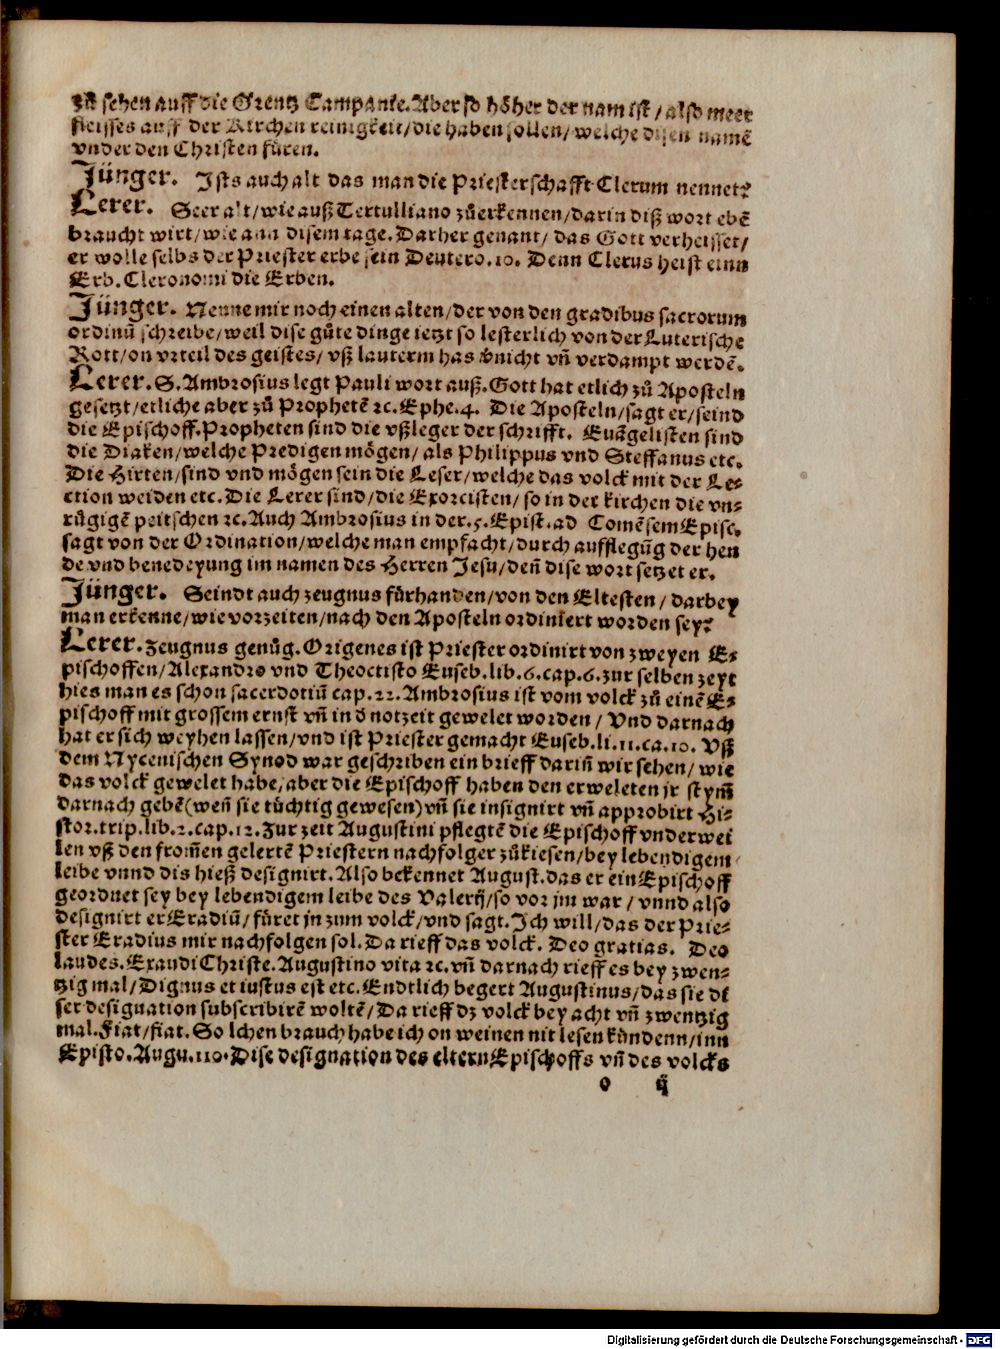 zů sehen auff die Grentz Campanie. Aber so höher der nam ist / also meer
fleisses auff der Kirchen reinigkeit / die haben sollen / welche disen namē
vnder den Christen füren.
Jünger. Ists auch alt das man die Priesterschafft Clerum nennet?
Lerer. Seer alt / wie auß Tertulliano zůerkennen / darin diß wort ebē
braucht wirt / wie ann disem tage. Darher genant / das Gott verheisset /
er wolle selbs der Priester erbe sein Deutero. 10. Denn Clerus heist einn
Erb. Cleronomi die Erben.
Jünger. Nenne mir noch einen alten / der von den gradibus sacrorum
ordinū schreibe / weil dise gůte dinge ietzt so lesterlich von der Luterische
Rott / on vrteil des geistes / vß lauterm has vnicht vñ verdampt werdē.
Lerer. S. Ambrosius legt Pauli wort auß. Gott hat etlich zů Aposteln
gesetzt / etliche aber zů Prophetē ꝛc. Ephe. 4. Die Aposteln / sagt er / seind
die Epischoff. Propheten sind die vßleger der schrifft. Euāgelisten sind
die Diaken / welche Predigen mögen / als Philippus vnd Steffanus etc.
Die Hirten / sind vnd mögen sein die Leser / welche das volck mit der Le⸗
ction weiden etc. Die Lerer sind / die Exorcisten / so in der kirchen die vn⸗
rügigē peitschen ꝛc. Auch Ambrosius in der. 5. Epist. ad Comēsem Episc.
sagt von der Ordination / welche man empfacht / durch aufflegūg der hen
de vnd benedeyung im namen des Herren Jesu / deñ dise wort setzet er.
Jünger. Seindt auch zeugnus fürhanden / von den Eltesten / darbey
man erkenne / wie vorzeiten / nach den Aposteln ordiniert worden sey?
Lerer. Zeugnus genůg. Origenes ist Priester ordinirt von zweyen E⸗
pischoffen / Alexandro vnd Theoctisto Euseb. lib. 6. cap. 6. zur selben zeyt
hies man es schon sacerdotiū cap. 22. Ambrosius ist vom volck zů einē E⸗
pischoff mit grossem ernst vñ in d̄ notzeit gewelet worden / Vnd darnach
hat er sich weyhen lassen / vnd ist Priester gemacht Euseb. li. 11. ca. 10. Vß
dem Nycenischen Synod war geschriben ein brieff dariñ wir sehen / wie
das volck gewelet habe / aber die Epischoff haben den erweleten jr stym̄
darnach gebē (weñ sie tüchtig gewesen) vñ sie insignirt vñ approbirt Hi⸗
stor. trip. lib. 2. cap. 12. Zur zeit Augustini pflegtē die Epischoff vnderwei
len vß den from̄en gelertē Priestern nachfolger zůkiesen / bey lebendigem
leibe vnnd dis hieß designirt. Also bekennet August. das er ein Epischoff
geordnet sey bey lebendigem leibe des Valerij / so vor jm war / vnnd also
designirt er Eradiū / füret jn zum volck / vnd sagt. Ich will / das der Prie⸗
ster Eradius mir nachfolgen sol. Da rieff das volck. Deo gratias. Deo
laudes. Exaudi Christe. Augustino vita ꝛc. vñ darnach rieff es bey zwen⸗
tzig mal / Dignus et iustus est etc. Endtlich begert Augustinus / das sie di
ser designation subscribirē woltē / Da rieff dz volck bey acht vñ zwentzig
mal. Fiat / fiat. So lchen brauch habe ich on weinen nit lesen kündenn / inn
Episto. Augu. 110. Dise designation des eltern Epischoffs vñ des volcks
o ij
Digitalisierung gefördert durch die Deutsche Forschungsgemeinschaft - DFG